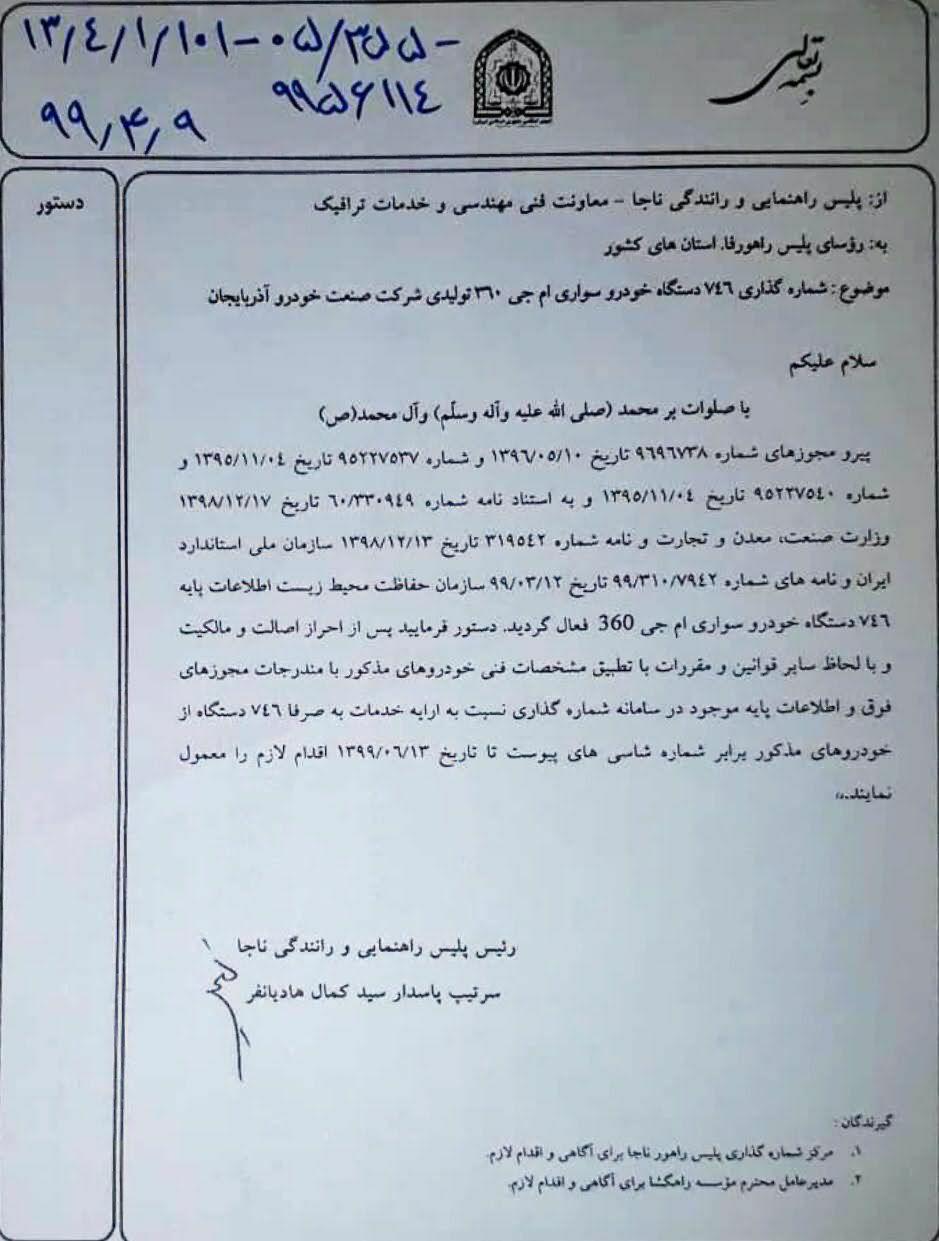 بسمه تعالی
۱۳/۴/۱/۱۰۱-۰۵/۳۵۵-
۹۹۵۶۱۱۴
۹۹/۴/۹
دستور
از: پلیس راهنمایی و رانندگی ناجا - معاونت فنی مهندسی و خدمات ترافیک
به: رؤسای پلیس راهورفا. استان های کشور
موضوع: شماره گذاری ۷۴۶ دستگاه خودرو سواری ام جی ۳۶۰ تولیدی شرکت صنعت خودرو آذربایجان
سلام علیکم
با صلوات بر محمد (صلی الله علیه وآله وسلّم) وآل محمد(ص)
پیرو مجوزهای شماره ۹۶۹۶۷۳۸ تاریخ ۱۳۹۶/۰۵/۱۰ و شماره ۹۵۲۲۷۵۳۷ تاریخ ۱۳۹۵/۱۱/۰۴ و
شماره ۹۵۲۲۷۵۴۰ تاریخ ۱۳۹۵/۱۱/۰۴ و به استناد نامه شماره ۶۰/۳۳۰۹۴۹ تاریخ ۱۳۹۸/۱۲/۱۷
وزارت صنعت، معدن و تجارت و نامه شماره ۳۱۹۵۴۲ تاریخ ۱۳۹۸/۱۲/۱۳ سازمان ملی استاندارد
ایران و نامه های شماره ۹۹/۳۱۰/۷۹۴۲ تاریخ ۹۹/۰۳/۱۲ سازمان حفاظت محیط زیست اطلاعات پایه
۷۴۶ دستگاه خودرو سواری ام جی 360 فعال گردید. دستور فرمایید پس از احراز اصالت و مالکیت
و با لحاظ سایر قوانین و مقررات با تطبیق مشخصات فنی خودروهای مذکور با مندرجات مجوزهای
فوق و اطلاعات پایه موجود در سامانه شماره گذاری نسبت به ارایه خدمات به صرفا ۷۴۶ دستگاه از
خودروهای مذکور برابر شماره شاسی های پیوست تا تاریخ ۱۳۹۹/۰۶/۱۳ اقدام لازم را معمول
نمایند.
رئیس پلیس راهنمایی و رانندگی ناجا
سرتیپ پاسدار سید کمال هادیانفر
گیرندگان:
۱. مرکز شماره گذاری پلیس راهور ناجا برای آگاهی و اقدام لازم.
۲. مدیرعامل محترم مؤسسه راهگشا برای آگاهی و اقدام لازم.